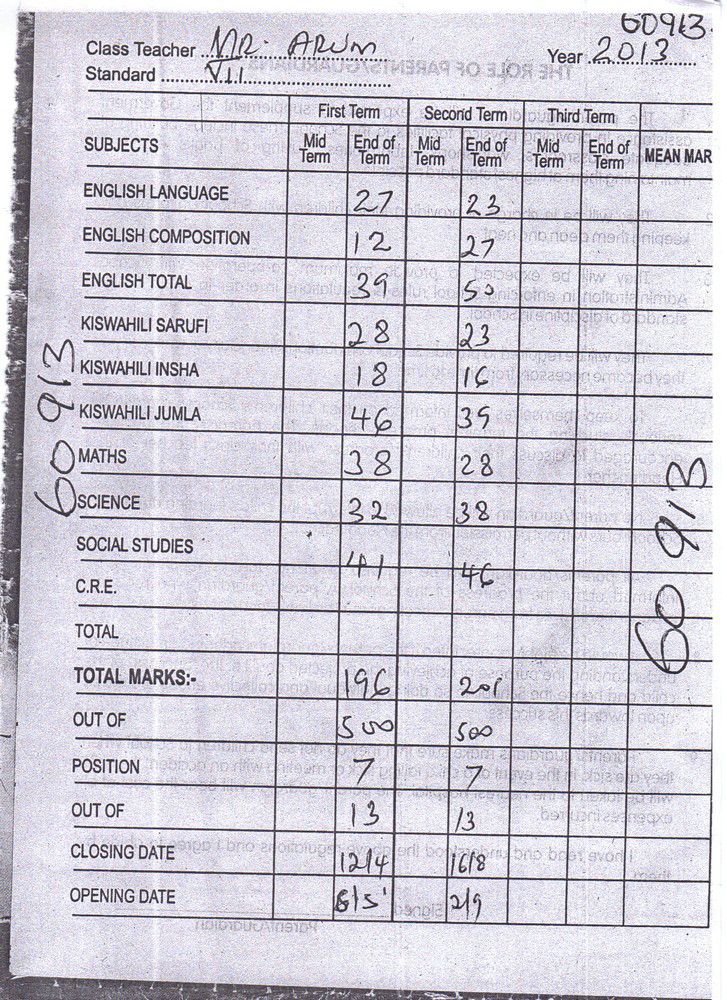 60913.
Class Teacher ...MR. ARUM
Year 2013
Standard ...VII
First Term Second Term Third Term
SUBJECTS Mid Term End of Term Mid Term End of Term Mid Term End of Term MEAN MAR
ENGLISH LANGUAGE 27 23
ENGLISH COMPOSITION 12 27
ENGLISH TOTAL 39 50
KISWAHILI SARUFI 28 23
KISWAHILI INSHA 18 16
KISWAHILI JUMLA 46 39
MATHS 38 28
SCIENCE 32 38
SOCIAL STUDIES
C.R.E. 41 46
TOTAL
TOTAL MARKS:- 196 201
OUT OF 500 500
POSITION 7 7
OUT OF 13 13
CLOSING DATE 12/4 16/8
OPENING DATE 6/5 2/9
60913
60913